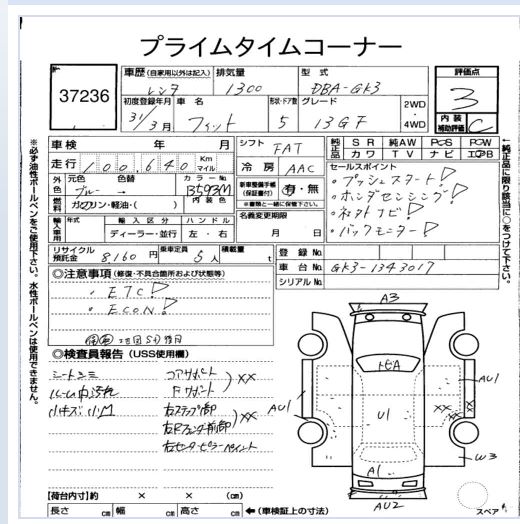 プライムタイムコーナー
37236
車歴(自家用以外は記入) 排気量 型式 評価点
レンタ 1300 DBA-GK3 3
初度登録年月 車名 形状・ドア数 グレード 2WD・4WD 内装補助評価 C
31/3月 フィット 5 13GF
車検 年 月 シフト FAT 純正品 SR 純AW PS PW
カワ TV ナビ エアB
走行 100,640 Km マイル 冷房 AAC
セールスポイント
・プッシュスタート!
・ホンダセンシング!
・ナビ!
・バックモニター!
外色 元色 色替 カラーNo. 新車整備手帳(保証書付) 有・無
ブルー → B593M ※書類と一緒に保管下さい。
燃料 ガソリン・軽油・( ) 内装色 名義変更期限
月 日
輸入車用 輸入区分 ハンドル
ディーラー・並行 左・右
リサイクル預託金 8160円 乗車定員 5人 積載量 t
登録No.
車台No. GK3-1343017
シリアルNo.
◎注意事項(修復・不具合箇所および状態等)
・ETC!
・ECON!
◎検査員報告(USS使用欄)
シートシミ コアサポート
ルーム内汚れ Fサポート XX
小キズ小凹 右ステップ部
右Rフェンダ前部 XX
右センターピラー
A3
トビA
AU1
AU1
U1
XX
W3
A1
AU2
スペア
【荷台内寸】約 × × (cm)
長さ cm 幅 cm 高さ cm ←(車検証上の寸法)
※必ず油性ボールペンをご使用下さい。水性ボールペンは使用できません。
←純正品に限り該当に○をつけて下さい。